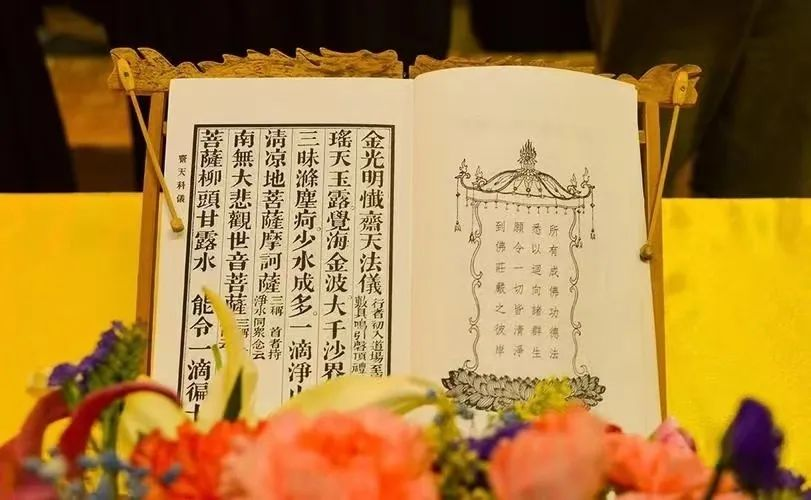 所有成佛功德法
悉以迴向諸群生
願令一切皆清淨
到佛莊嚴之彼岸
金光明懺齋天法儀 行者初入道場至
敷具鳴引磬頂禮
瑤天玉露。覺海金波。大千沙界
三昧滌塵痾。少水成多。一滴淨
清凉地菩薩摩訶薩 三稱 首者持
淨水同眾念云
南無大悲觀世音菩薩 三稱
菩薩柳頭甘露水 能令一滴徧十
齋天科儀